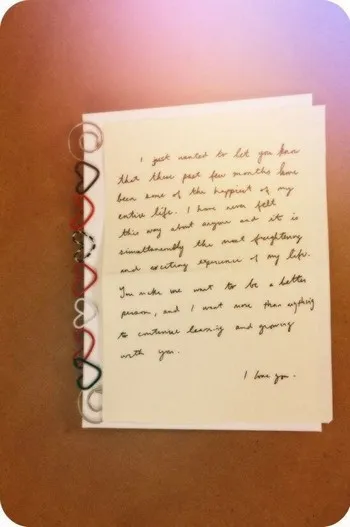 I just wanted to let you know
that these past few months have
been some of the happiest of my
entire life. I have never felt
this way about anyone and it is
simultaneously the most frightening
and exciting experience of my life.
You make me want to be a better
person, and I want more than anything
to continue learning and growing
with you.
I love you.